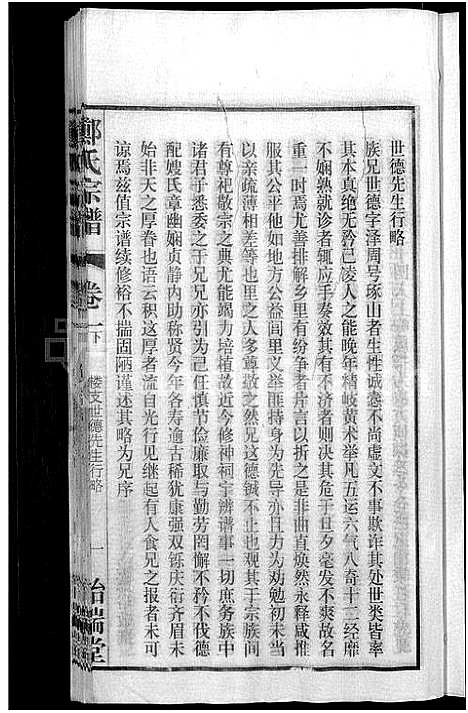 世德先生行略
族兄世德字泽周号琢山者生性诚悫不尚虚文不事欺诈其处世类皆率
其本真绝无矜己凌人之能晚年精岐黄术举凡五运六气八奇十二经靡
不娴熟就诊者辄应手奏效其有不济者则决其危于旦夕毫发不爽故名
重一时焉尤善排解乡里有纷争者片言以折之是非曲直焕然永释咸推
服其公平他如地方公益闾里义举匪特身为先导亦且力为劝勉初未当
以亲疏薄相差等也里之人多尊敬之然兄这德鍼不止也观其于宗族间
有尊祀敬宗之典尤能竭力培植故近今修神祠宇辨谱事一切庶务族中
诸君子悉委之于兄兄亦引为己任慎节俭廉取与勤劳罔懈不矜不伐德
配嫂氏章幽娴贞静内助称贤今年各寿逾古稀犹康强双铄庆衍齐眉未
始非天之厚眷也语云积这厚者流自光行见继起有人食兄之报者未可
谅焉兹值宗谱续修裕不揣固陋谨述其略为兄序
鄭氏宗譜
卷一下
楼支世德先生行略
一
治瑞堂